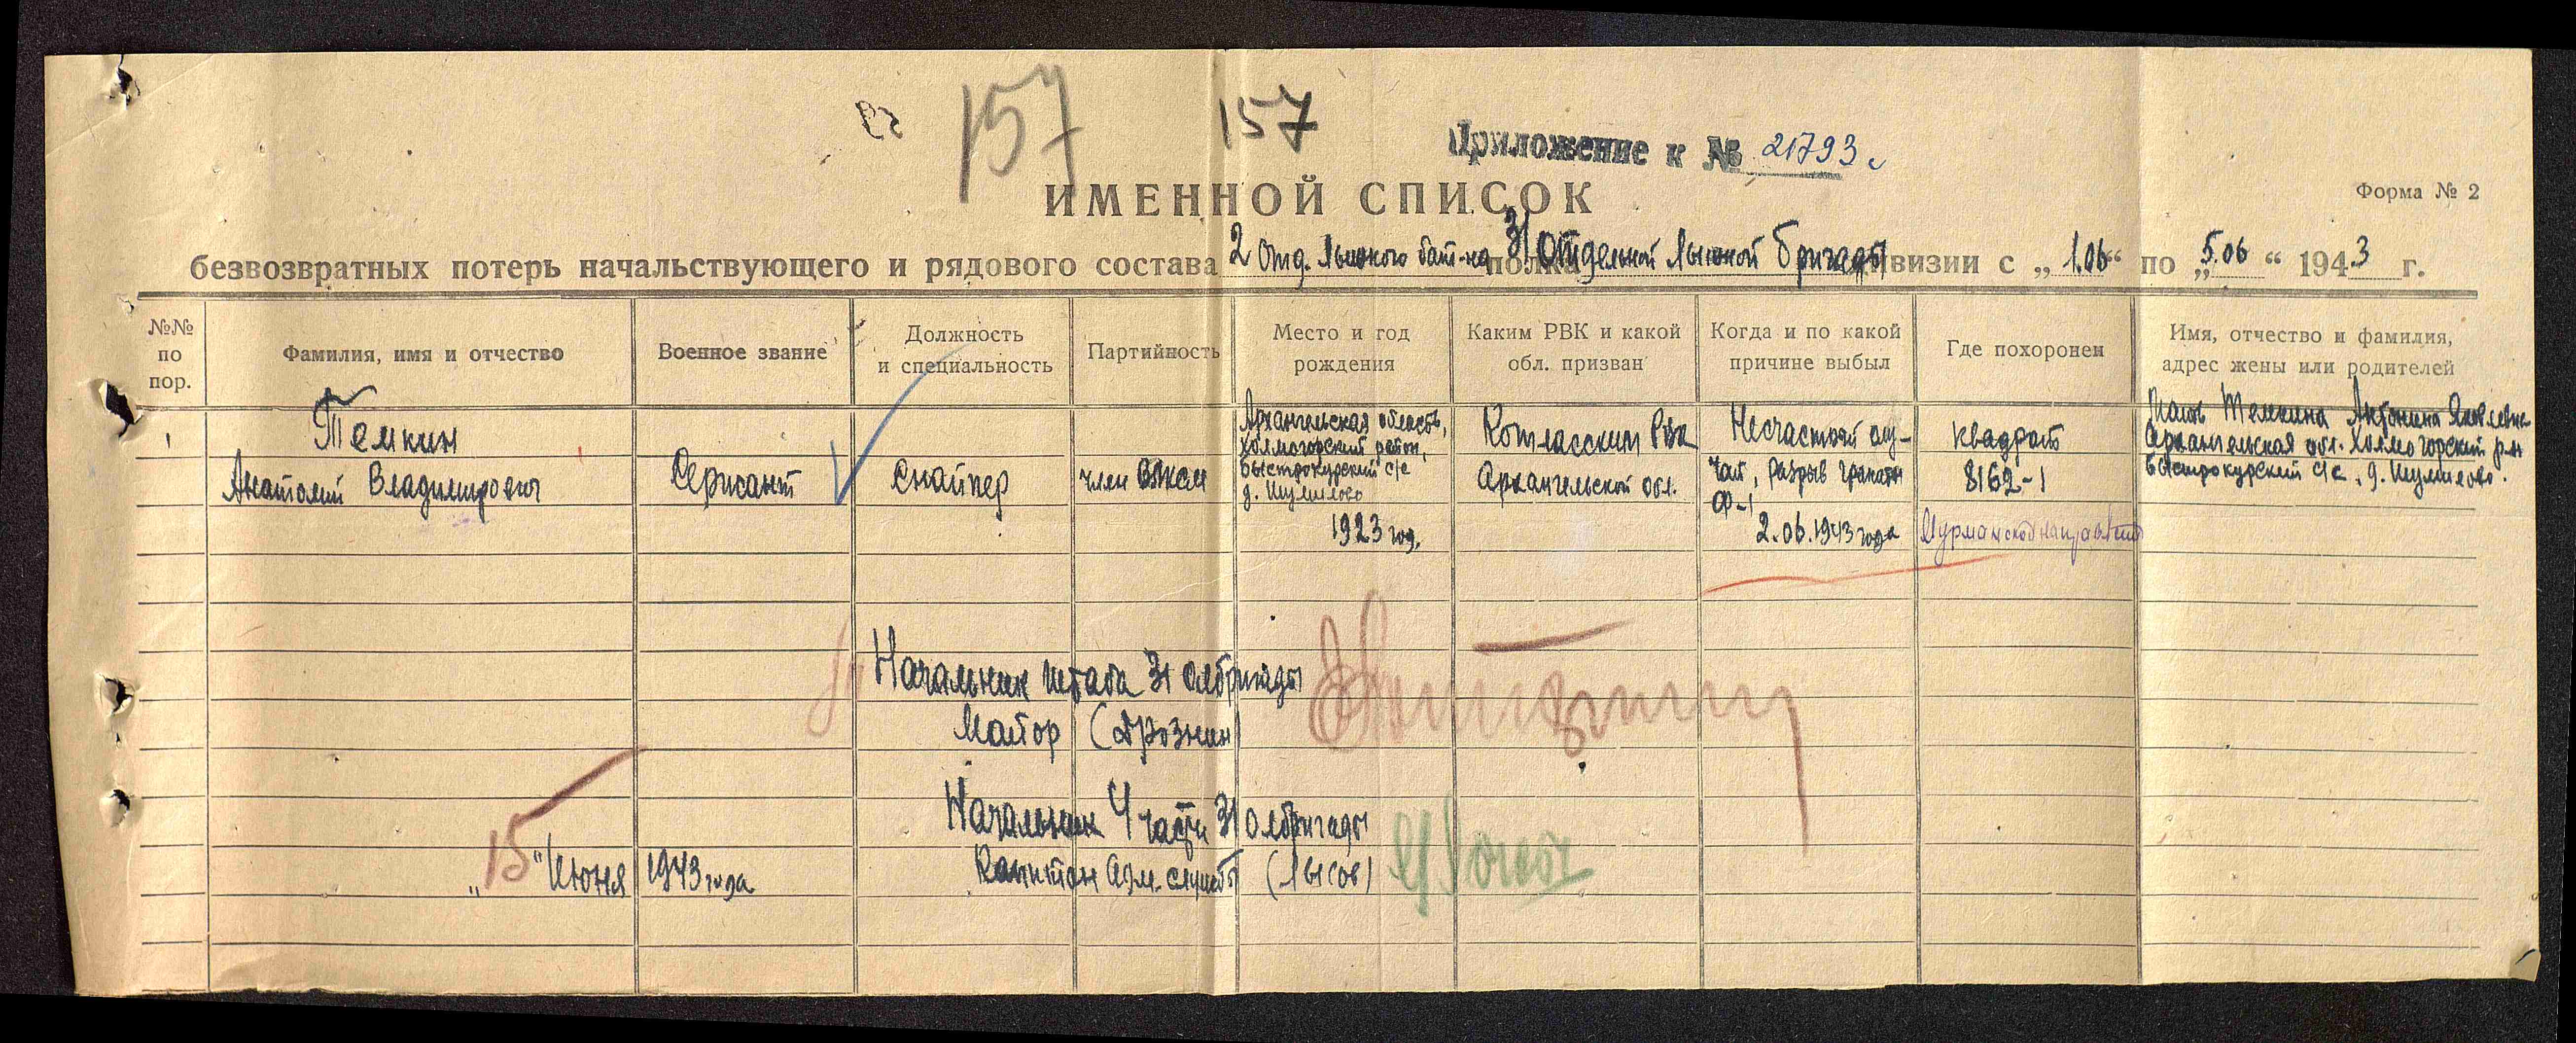 157 157
Приложение к № 21793с
ИМЕННОЙ СПИСОК
Форма № 2
безвозвратных потерь начальствующего и рядового состава 2 отд. лыжного бат-на полка 31 отдельной лыжной бригады дивизии с „1.06“ по „5.06“ 1943 г.
№№ по пор.
Фамилия, имя и отчество
Военное звание
Должность и специальность
Партийность
Место и год рождения
Каким РВК и какой обл. призван
Когда и по какой причине выбыл
Где похоронен
Имя, отчество и фамилия, адрес жены или родителей
1
Темкин
Анатолий Владимирович
Сержант
Снайпер
член ВЛКСМ
Архангельская область,
Холмогорский район,
Быстрокурский с/с
д. Шумилово
1923 год.
Котласским РВК
Архангельской обл.
Несчастный слу-
чай, разрыв гранаты
Ф-1
2.06.1943 года
квадрат
8162-1
Мурманской направлен
Мать Темкина Антонина Яковлевна
Архангельская обл. Холмогорский р-н
Быстрокурский с/с, д. Шумилово.
Начальник штаба 31 олбригады
Майор (Дрознин)
Начальник 4 части 31 олбригады
Капитан адм. службы (Лысов)
„15“ Июня 1943 года